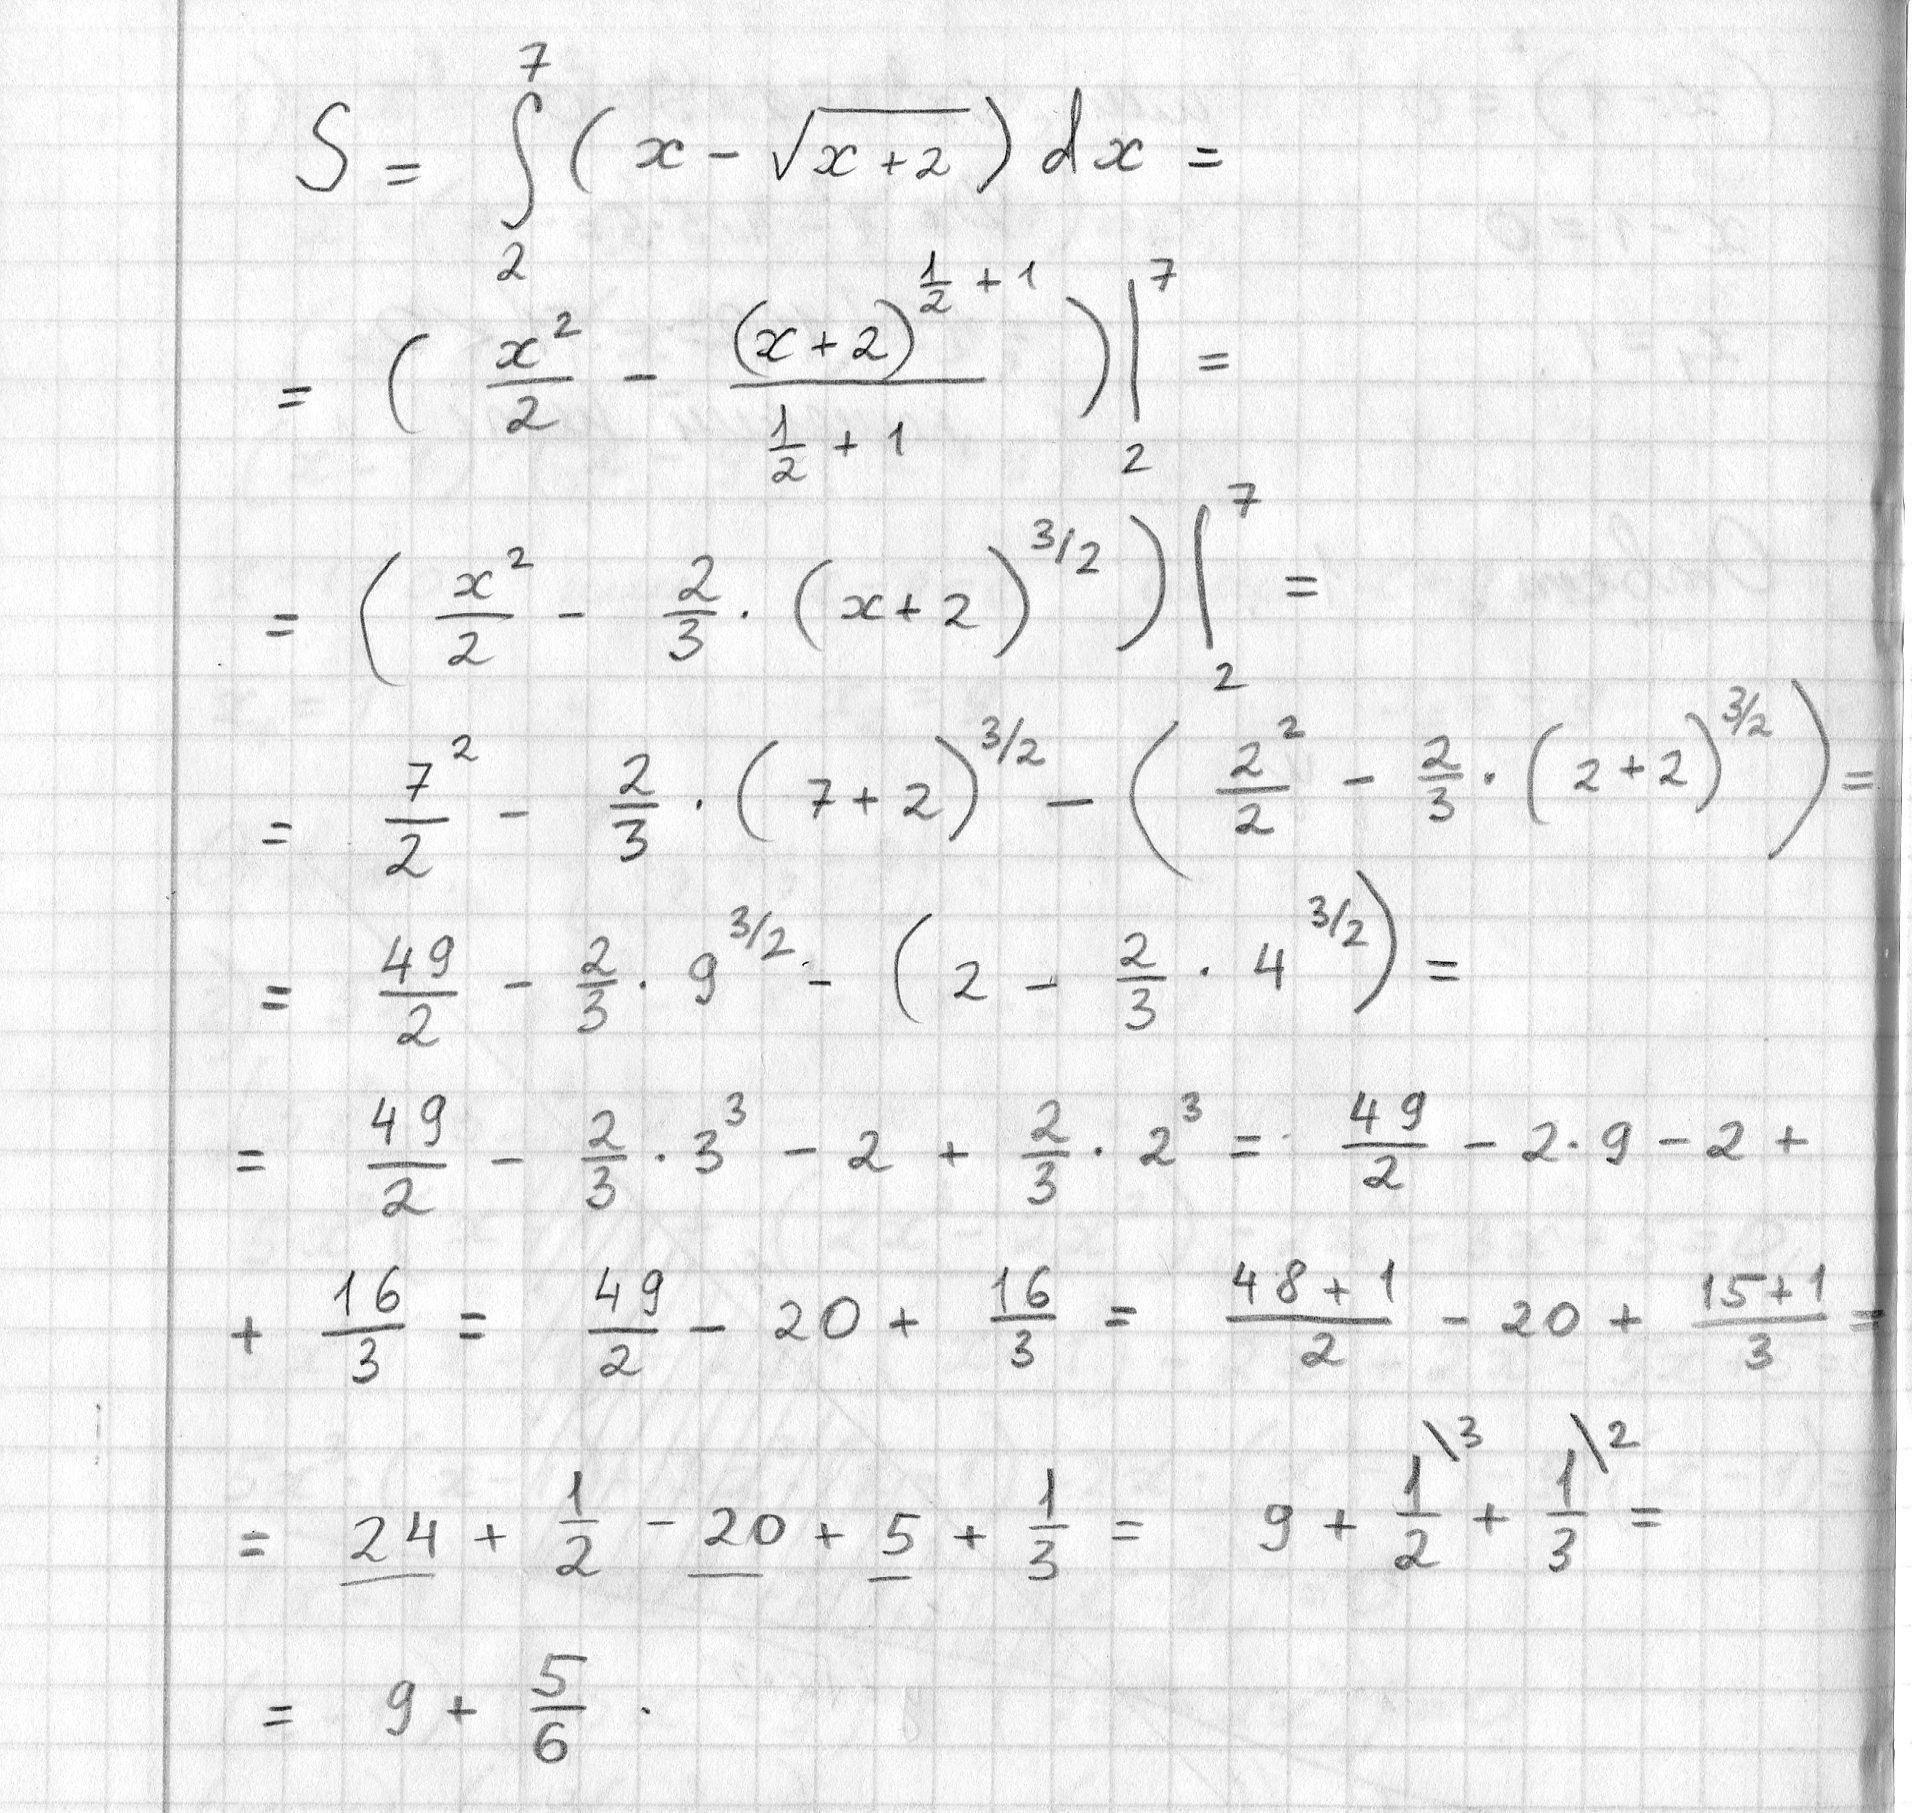 S = ∫₂⁷ (x - √(x+2)) dx =
= (x²/2 - (x+2)^(1/2 + 1)/(1/2 + 1))|₂⁷ =
= (x²/2 - 2/3 · (x+2)^(3/2))|₂⁷ =
= 7²/2 - 2/3 · (7+2)^(3/2) - (2²/2 - 2/3 · (2+2)^(3/2)) =
= 49/2 - 2/3 · 9^(3/2) - (2 - 2/3 · 4^(3/2)) =
= 49/2 - 2/3 · 3³ - 2 + 2/3 · 2³ = 49/2 - 2·9 - 2 +
+ 16/3 = 49/2 - 20 + 16/3 = (48+1)/2 - 20 + (15+1)/3 =
= 24 + 1/2 - 20 + 5 + 1/3 = 9 + 1/2\3 + 1/3\2 =
= 9 + 5/6 .